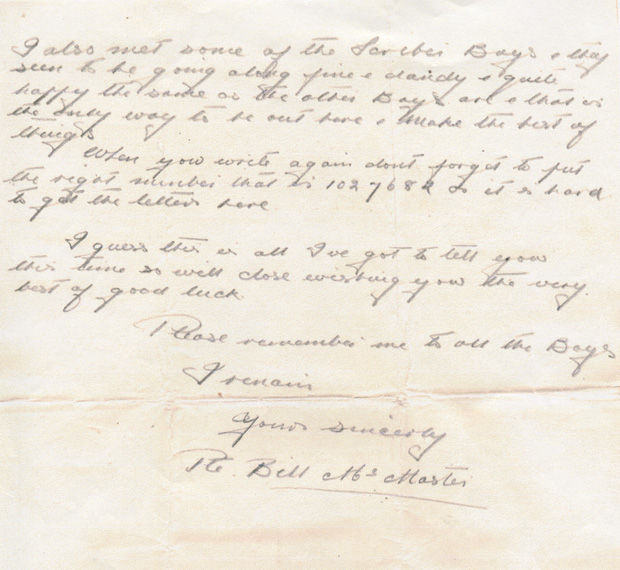 I also met some of the Scriber Boys & they
seem to be going along fine & dandy & quite
happy the same as the other Boys are & that is
the only way to be out here & make the best of
things
When you write again dont forget to put
the right number that is 1027682 as it is hard
to get the letters here
I guess this is all I've got to tell you
this time so will close wishing you the very
best of good luck
Please remember me to all the Boys
I remain
Yours sincerly
Pte. Bill McMaster